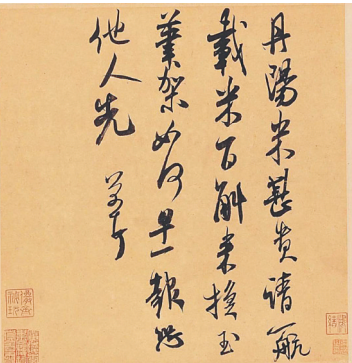 丹陽米甚貴請一航
載米百斛來換玉
筆架如何早一報恐
他人先
芾頓首